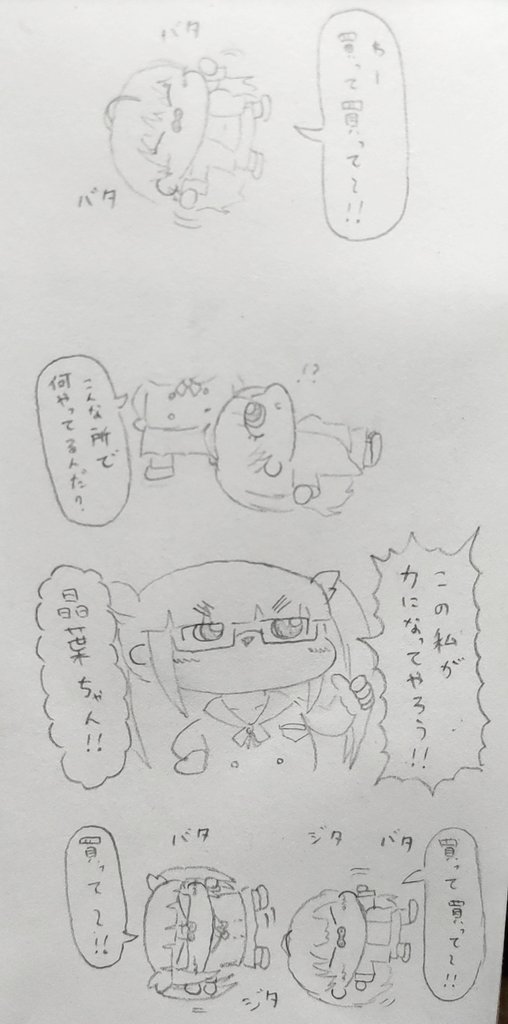 わー
買って買って〜!!
バタ
バタ
!?
こんな所で
何やってるんだ?
この私が
力になってやろう!!
晶葉ちゃん!!
買って買って〜!!
バタ
ジタ
バタ
ジタ
買って〜!!